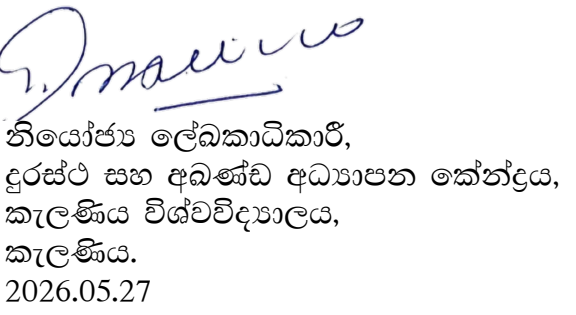 නියෝජ්‍ය ලේඛකාධිකාරී,
දුරස්ථ සහ අඛණ්ඩ අධ්‍යාපන කේන්ද්‍රය,
කැලණිය විශ්වවිද්‍යාලය,
කැලණිය.
2026.05.27